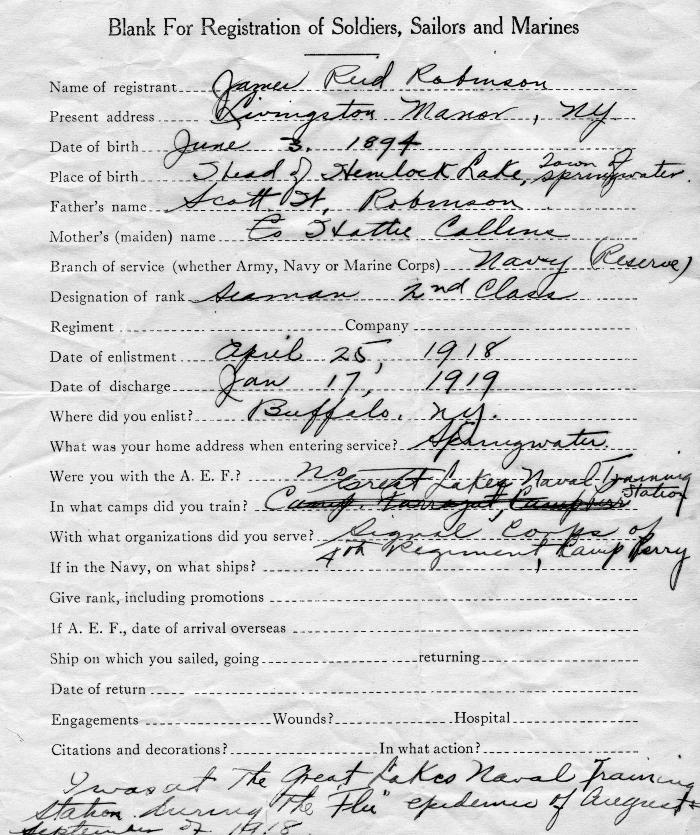 Blank For Registration of Soldiers, Sailors and Marines
Name of registrant James Reid Robinson
Present address Livingston Manor, NY
Date of birth June 3. 1894
Place of birth Head of Hemlock Lake, Town of Springwater.
Father's name Scott W. Robinson
Mother's (maiden) name Hattie Collins
Branch of service (whether Army, Navy or Marine Corps) Navy (Reserve)
Designation of rank Seaman 2nd Class
Regiment Company
Date of enlistment April 25, 1918
Date of discharge Jan 17, 1919
Where did you enlist? Buffalo. NY.
What was your home address when entering service? Springwater
Were you with the A. E. F.? No
Great Lakes Naval Training Station
In what camps did you train? Camp Farragut, Camp
With what organizations did you serve? Signal Corps of
4th Regiment, Camp Perry
If in the Navy, on what ships?
Give rank, including promotions
If A. E. F., date of arrival overseas
Ship on which you sailed, going returning
Date of return
Engagements Wounds? Hospital
Citations and decorations? In what action?
I was at The Great Lakes Naval Training
Station during the "Flu" epidemic of August &
September of 1918.